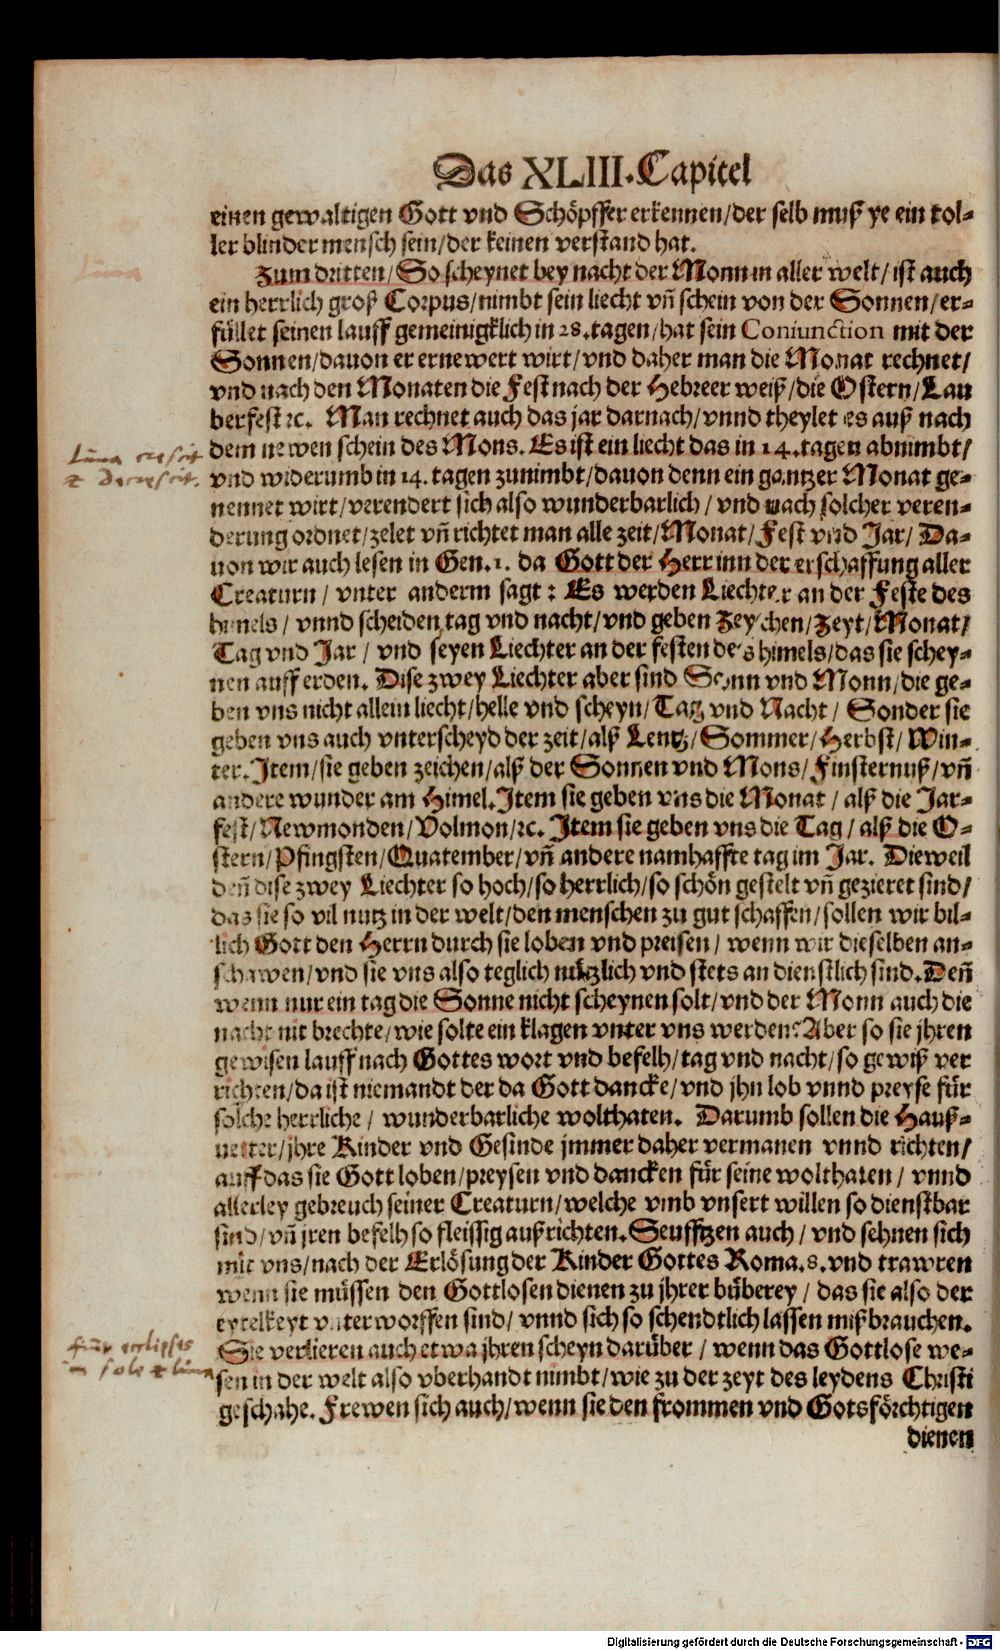 Das XLIII. Capitel
einen gewaltigen Gott vnd Schöpffer erkennen/der selb muß ye ein tol-
ler blinder mensch sein/der keinen verstand hat.
Luna
Zum dritten/So scheynet bey nacht der Monn in aller welt/ist auch
ein herrlich groß Corpus/nimbt sein liecht vñ schein von der Sonnen/er-
füllet seinen lauff gemeinigklich in 28.tagen/hat sein Coniunction mit der
Sonnen/dauon er ernewert wirt/vnd daher man die Monat rechnet/
vnd nach den Monaten die Fest nach der Hebreer weiß/die Ostern/Lau
berfest ꝛc. Man rechnet auch das jar darnach/vnnd theylet es auß nach
Luna crescit
dem newen schein des Mons. Es ist ein liecht das in 14.tagen abnimbt/
& decrescit.
vnd widerumb in 14. tagen zunimbt/dauon denn ein gantzer Monat ge-
nennet wirt/verendert sich also wunderbarlich/vnd nach solcher veren-
derung ordnet/zelet vñ richtet man alle zeit/Monat/Fest vnd Jar/ Da-
uon wir auch lesen in Gen.1. da Gott der Herr inn der erschaffung aller
Creaturn/ vnter anderm sagt: Es werden Liechter an der Feste des
himels/ vnnd scheiden tag vnd nacht/vnd geben Zeychen/Zeyt/Monat/
Tag vnd Jar/ vnd seyen Liechter an der festen des himels/das sie schey-
nen auff erden. Dise zwey Liechter aber sind Sonn vnd Monn/die ge-
ben vns nicht allein liecht/helle vnd scheyn/Tag vnd Nacht/ Sonder sie
geben vns auch vnterscheyd der zeit/alß Lentz/Sommer/Herbst/Win-
ter. Item/sie geben zeichen/alß der Sonnen vnd Mons/Finsternuß/vñ
andere wunder am Himel. Item sie geben vns die Monat/ alß die Jar-
fest/Newmonden/Volmon/ꝛc. Item sie geben vns die Tag/alß die O-
stern/Pfingsten/Quatember/vñ andere namhaffte tag im Jar. Dieweil
deñ dise zwey Liechter so hoch/so herrlich/so schön gestelt vñ gezieret sind/
das sie so vil nutz in der welt/den menschen zu gut schaffen/sollen wir bil-
lich Gott den Herrn durch sie loben vnd preisen/ wenn wir dieselben an-
schawen/vnd sie vns also teglich nützlich vnd stets an dienstlich sind. Deñ
wenn nur ein tag die Sonne nicht scheynen solt/vnd der Monn auch die
nacht nit brechte/wie solte ein klagen vnter vns werden? Aber so sie jhren
gewisen lauff nach Gottes wort vnd befelh/tag vnd nacht/so gewiß ver
richten/da ist niemandt der da Gott dancke/vnd jhn lob vnnd preyse für
solche herrliche/ wunderbarliche wolthaten. Darumb sollen die Hauß-
uetter/jhre Kinder vnd Gesinde jmmer daher vermanen vnnd richten/
auff das sie Gott loben/preysen vnd dancken für seine wolthaten/ vnnd
allerley gebreuch seiner Creaturn/welche vmb vnsert willen so dienstbar
sind/vñ jren befelh so fleissig außrichten. Seufftzen auch/ vnd sehnen sich
mit vns/nach der Erlösung der Kinder Gottes Roma.8.vnd trawren
wenn sie müssen den Gottlosen dienen zu jhrer büberey/ das sie also der
eytelkeyt vnterworffen sind/ vnnd sich so schendtlich lassen mißbrauchen.
eclipses
Sie verlieren auch etwa jhren scheyn darüber/ wenn das Gottlose we-
in sole & luna
sen in der welt also vberhandt nimbt/wie zu der zeyt des leydens Christi
geschahe. Frewen sich auch/wenn sie den frommen vnd Gotsförchtigen
dienen
Digitalisierung gefördert durch die Deutsche Forschungsgemeinschaft - DFG